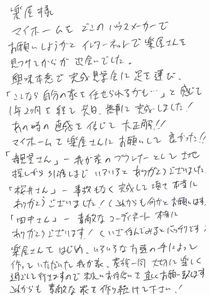 楽居様
マイホームをどこのハウスメーカーで
お願いしようかとインターネットで楽居さんを
見つけてからが出会いでした。
興味本意で完成見学会に足を運び、
「こんなら自分の家を任せられるかも…」と感じて
1年2ヶ月を経て先日、無事に完成しました!
あの時の直感を信じて大正解!!
マイホームを楽居さんにお願いして良かった!!
さん」― 我が家のプランナーとして土地
探しから引渡しまで いろいろとありがとうございました
「桜井さん」― 事故もなく完成して頂き本当に
ありがとうございました! これからも何かとお願いします
「田中さん」― 素敵なコーディネート 本当に
ありがとうございます!(いい住んでみるとバッチリです)
楽居さんをはじめ、いろいろな方面の手によって
作っていただいた我が家、家族一同 大切に楽しく
過ごして行きますので末永いお付き合いを宜しくお願い致します
これからも素敵な家を作り続けて下さい!